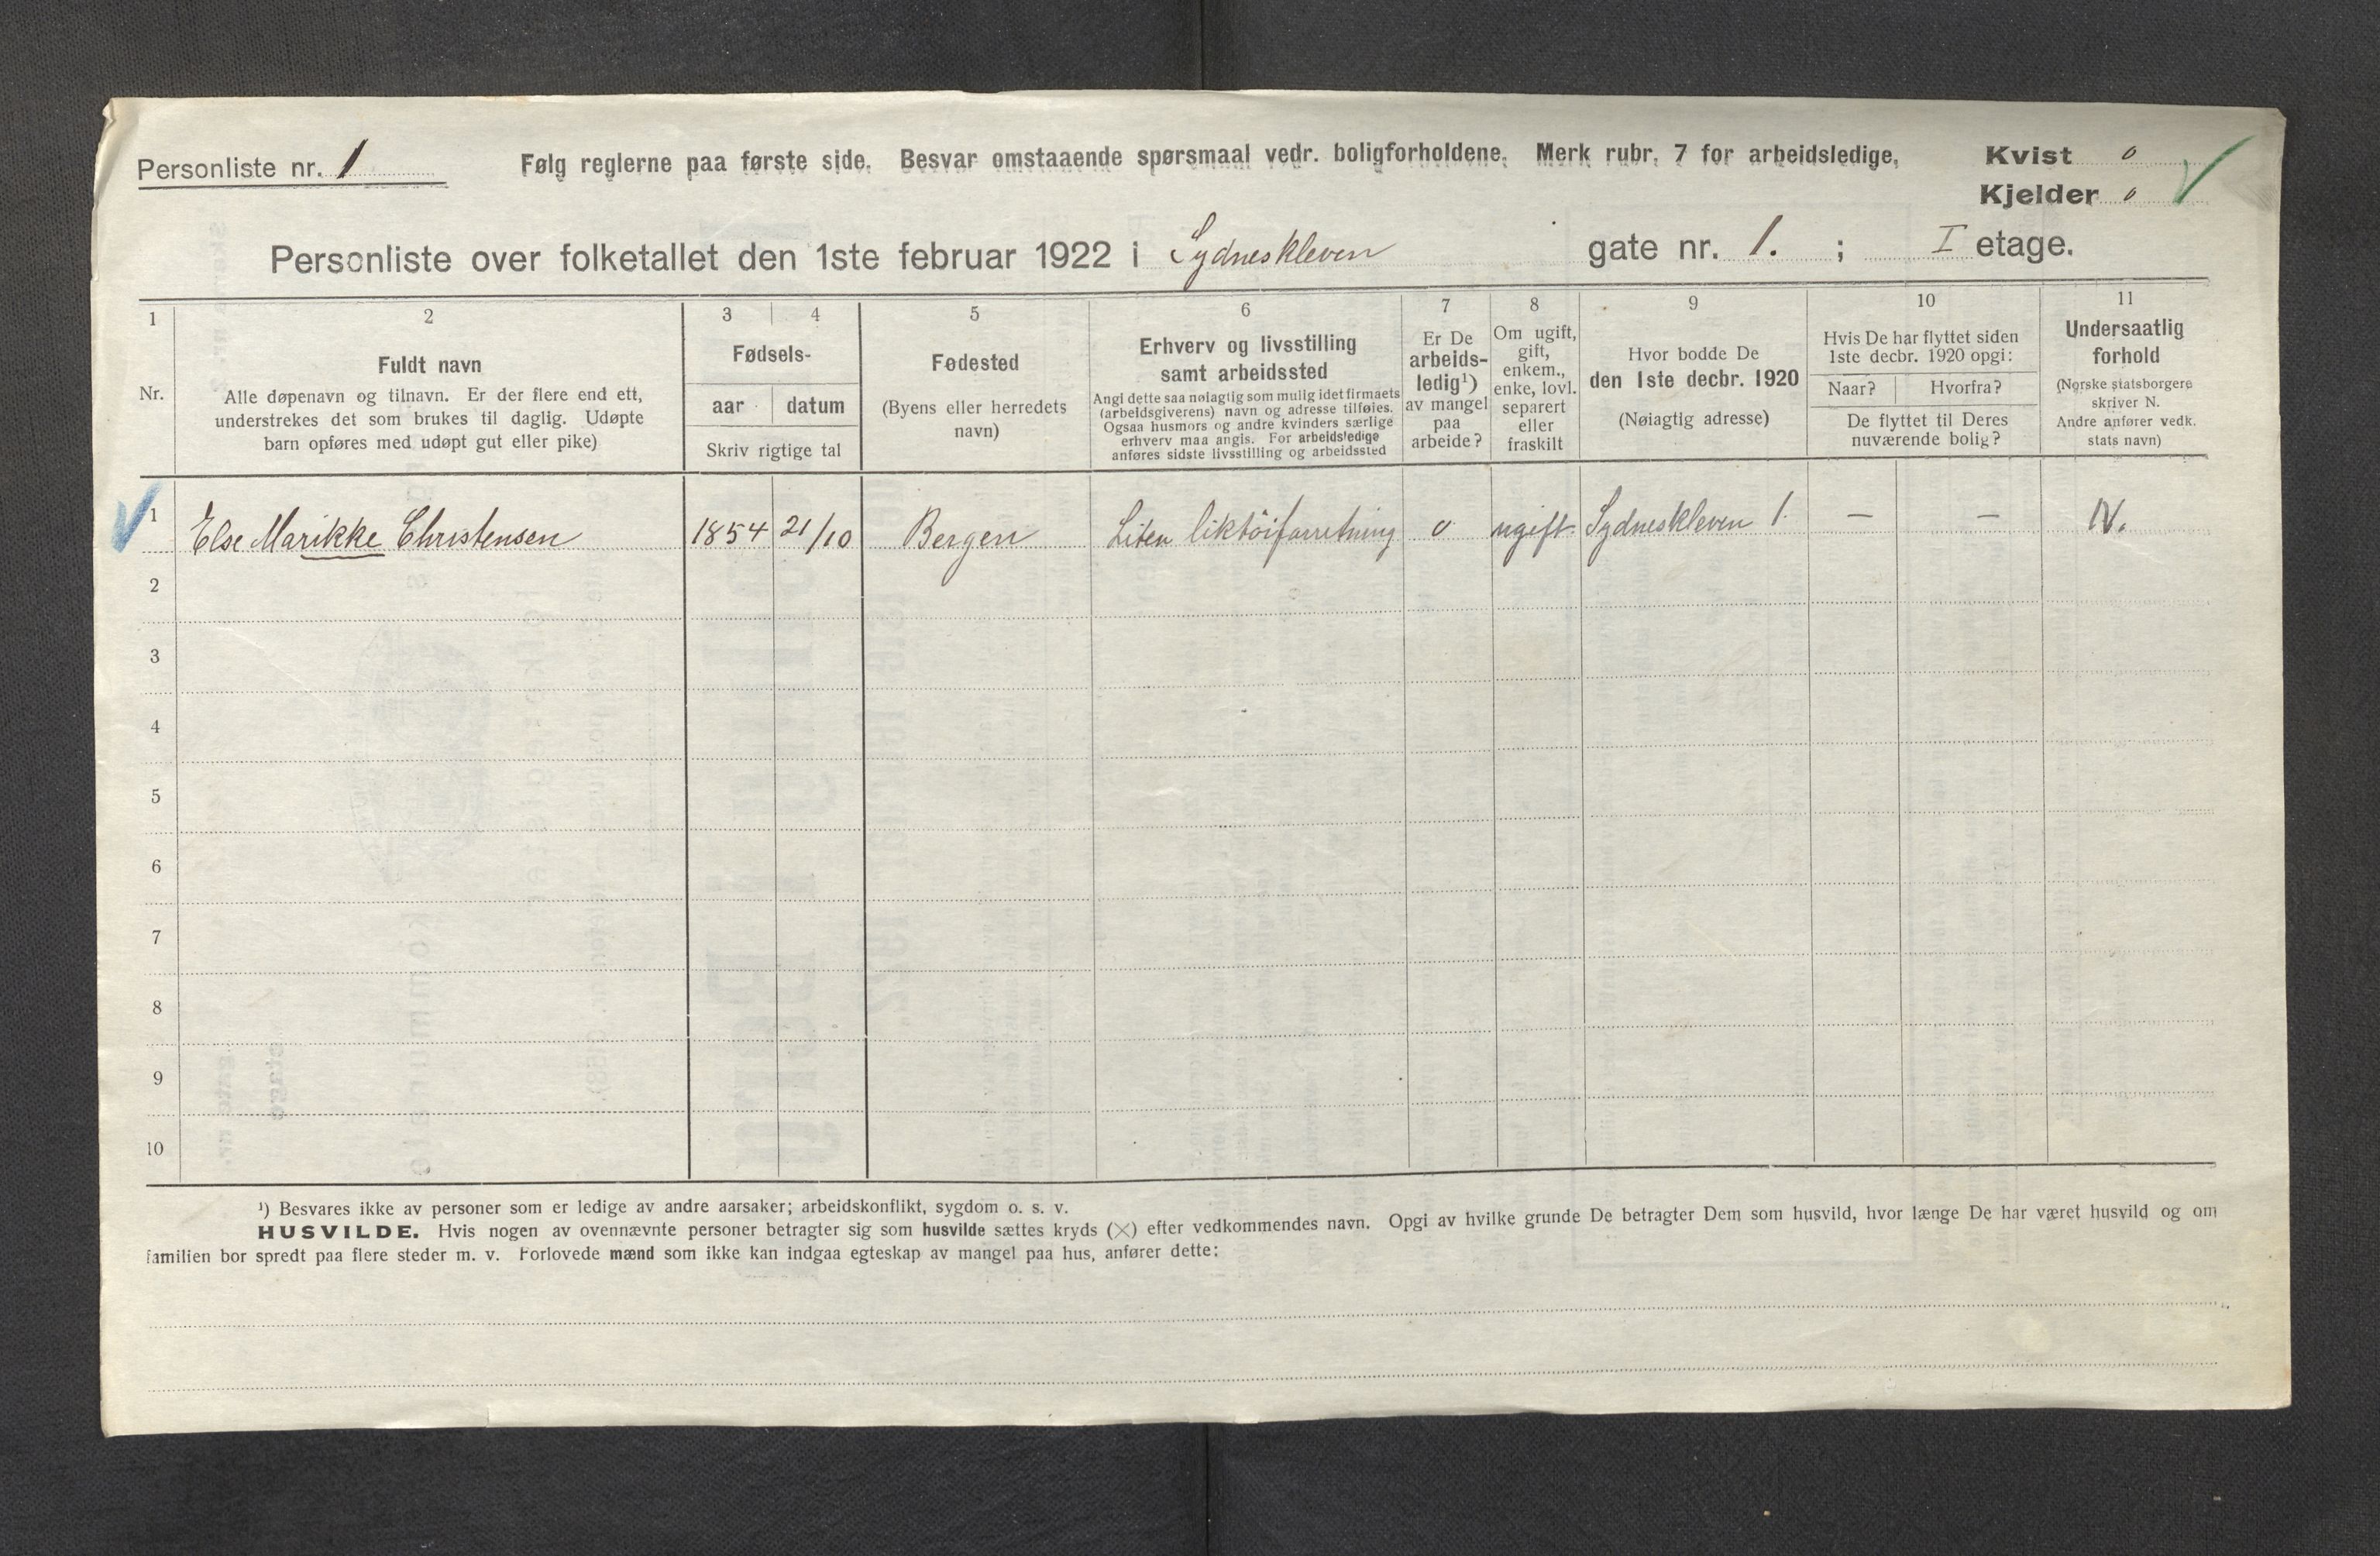 Personliste nr. 1
Følg reglerne paa første side. Besvar omstaaende spørsmaal vedr. boligforholdene. Merk rubr. 7 for arbeidsledige.
Kvist o
Kjelder o
Personliste over folketallet den 1ste februar 1922 i Sydneskleven gate nr. 1. ; I etage.
1 2 3 4 5 6 7 8 9 10 11
Nr.
Fuldt navn
Alle døpenavn og tilnavn. Er der flere end ett,
understrekes det som brukes til daglig. Udøpte
barn opføres med udøpt gut eller pike)
Fødsels-
aar datum
Skriv rigtige tal
Fødested
(Byens eller herredets
navn)
Erhverv og livsstilling
samt arbeidssted
Angi dette saa nøiagtig som mulig idet firmaets
(arbeidsgiverens) navn og adresse tilføies.
Ogsaa husmors og andre kvinders særlige
erhverv maa angis. For arbeidsledige
anføres sidste livsstilling og arbeidssted
Er De
arbeids-
ledig¹)
av mangel
paa
arbeide?
Om ugift,
gift,
enkem.,
enke, lovl.
separert
eller
fraskilt
Hvor bodde De
den 1ste decbr. 1920
(Nøiagtig adresse)
Hvis De har flyttet siden
1ste decbr. 1920 opgi:
Naar? Hvorfra?
De flyttet til Deres
nuværende bolig?
Undersaatlig
forhold
(Norske statsborgere
skriver N.
Andre anfører vedk.
stats navn)
1 Else Marikke Christensen 1854 21/10 Bergen Liten liktöiforretning o ugift Sydneskleven 1. — — N.
2
3
4
5
6
7
8
9
10
¹) Besvares ikke av personer som er ledige av andre aarsaker; arbeidskonflikt, sygdom o. s. v.
HUSVILDE. Hvis nogen av ovennævnte personer betragter sig som husvilde sættes kryds (×) efter vedkommendes navn. Opgi av hvilke grunde De betragter Dem som husvild, hvor længe De har været husvild og om
familien bor spredt paa flere steder m. v. Forlovede mænd som ikke kan indgaa egteskap av mangel paa hus, anfører dette: